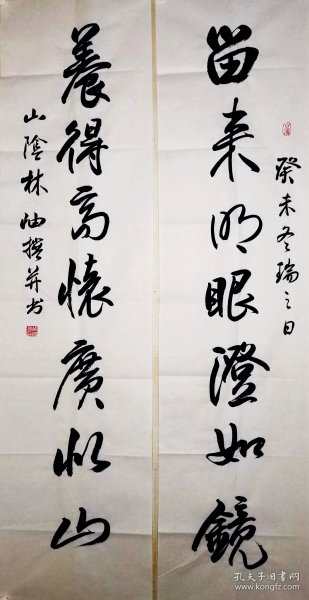 癸未冬瑞之日
留来明眼澄如鏡
養得高懷廣似山
山陰林岫撰并书
孔夫子旧书网
www.kongfz.com